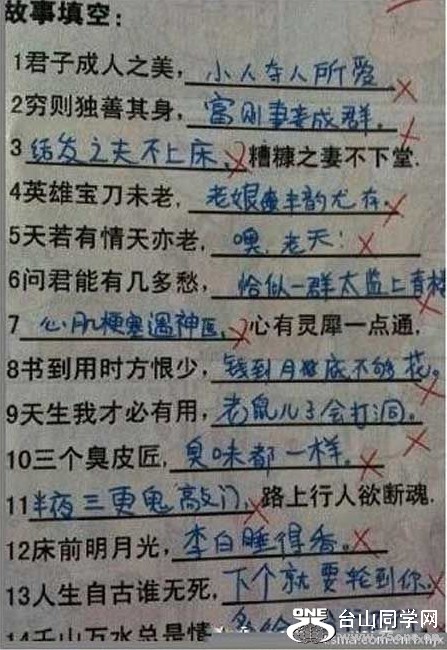 故事填空:
1君子成人之美,小人夺人所爱
2穷则独善其身,富则妻妾成群.
3结发之夫不上床,糟糠之妻不下堂.
4英雄宝刀未老,老娘风韵尤存.
5天若有情天亦老,噢,老天!
6问君能有几多愁,恰似一群太监上青楼
7心肌梗塞遇神医,心有灵犀一点通,
8书到用时方恨少,钱到月底不够花。
9天生我才必有用,老鼠儿子会打洞。
10三个臭皮匠,臭味都一样。
11半夜三更鬼敲门,路上行人欲断魂.
12床前明月光,李白睡得香。
13人生自古谁无死,下个就要轮到你.
14千山万水总是情
ONE 台山同学网
www.75one.cn